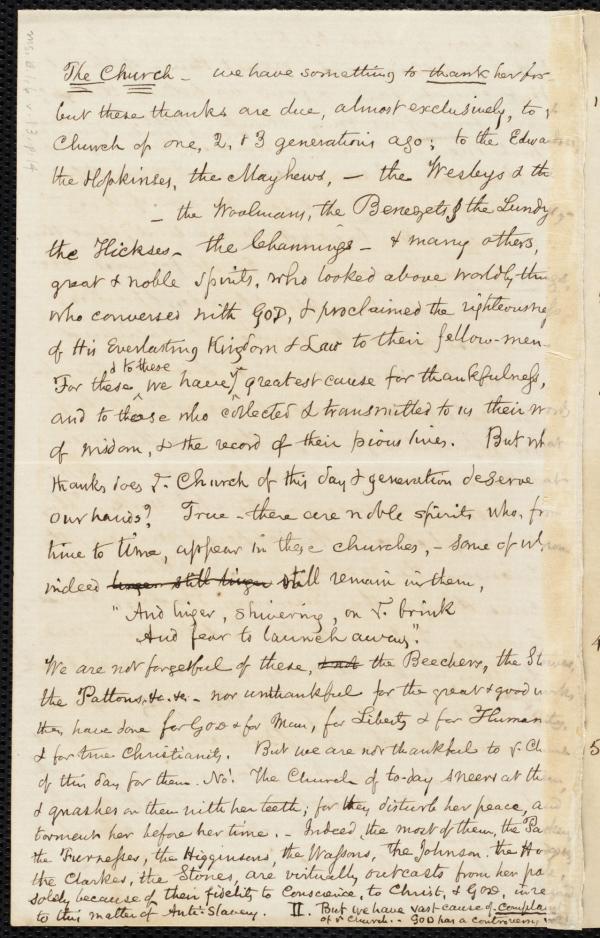 The Church – we have something to thank her for
but these thanks are due, almost exclusively, to
Church of one, 2, & 3 generations ago; to the
the Hopkinses, the Mayhews, – the Wesleys & the
– the Woolmans, the Benezets, the Lundys,
the Hickses – the Channings – & many others,
great & noble spirits, who looked above worldly things,
who conversed with GOD, & proclaimed the righteousness
of His Everlasting Kingdom & Law to their fellow-men
& to these
For these we have yᵉ greatest cause for thankfulness,
and to those who collected & transmitted to us their words
of wisdom, & the record of their pious lives. But what
thanks does yᵉ Church of this day & generation deserve at
our hands? True – there are noble spirits who, from
time to time, appear in these churches, – some of whom
indeed linger still linger still remain in them,
"And linger, shivering, on yᵉ brink
And fear to launch away."
We are not forgetful of these, the Beechers, the
the Pattons, &c. &c. – nor unthankful for the great & good works
they have done for GOD & for Man, for Liberty & for Humanity,
& for true Christianity. But we are not thankful to yᵉ Church
of this day for them. No! The Church of to-day sneers at them,
& gnashes on them with her teeth; for they disturb her peace, and
torment her before her time. – Indeed, the most of them, the
the Furnesses, the Higginsons, the Wassons, the Johnson, the
the Clarkes, the Stones, are virtually outcasts from her pale,
solely because of their fidelity to Conscience, to Christ, & GOD, in re
to this matter of Anti-Slavery. II. But we have vast cause of complaint
of yᵉ Church. – GOD has a controversy